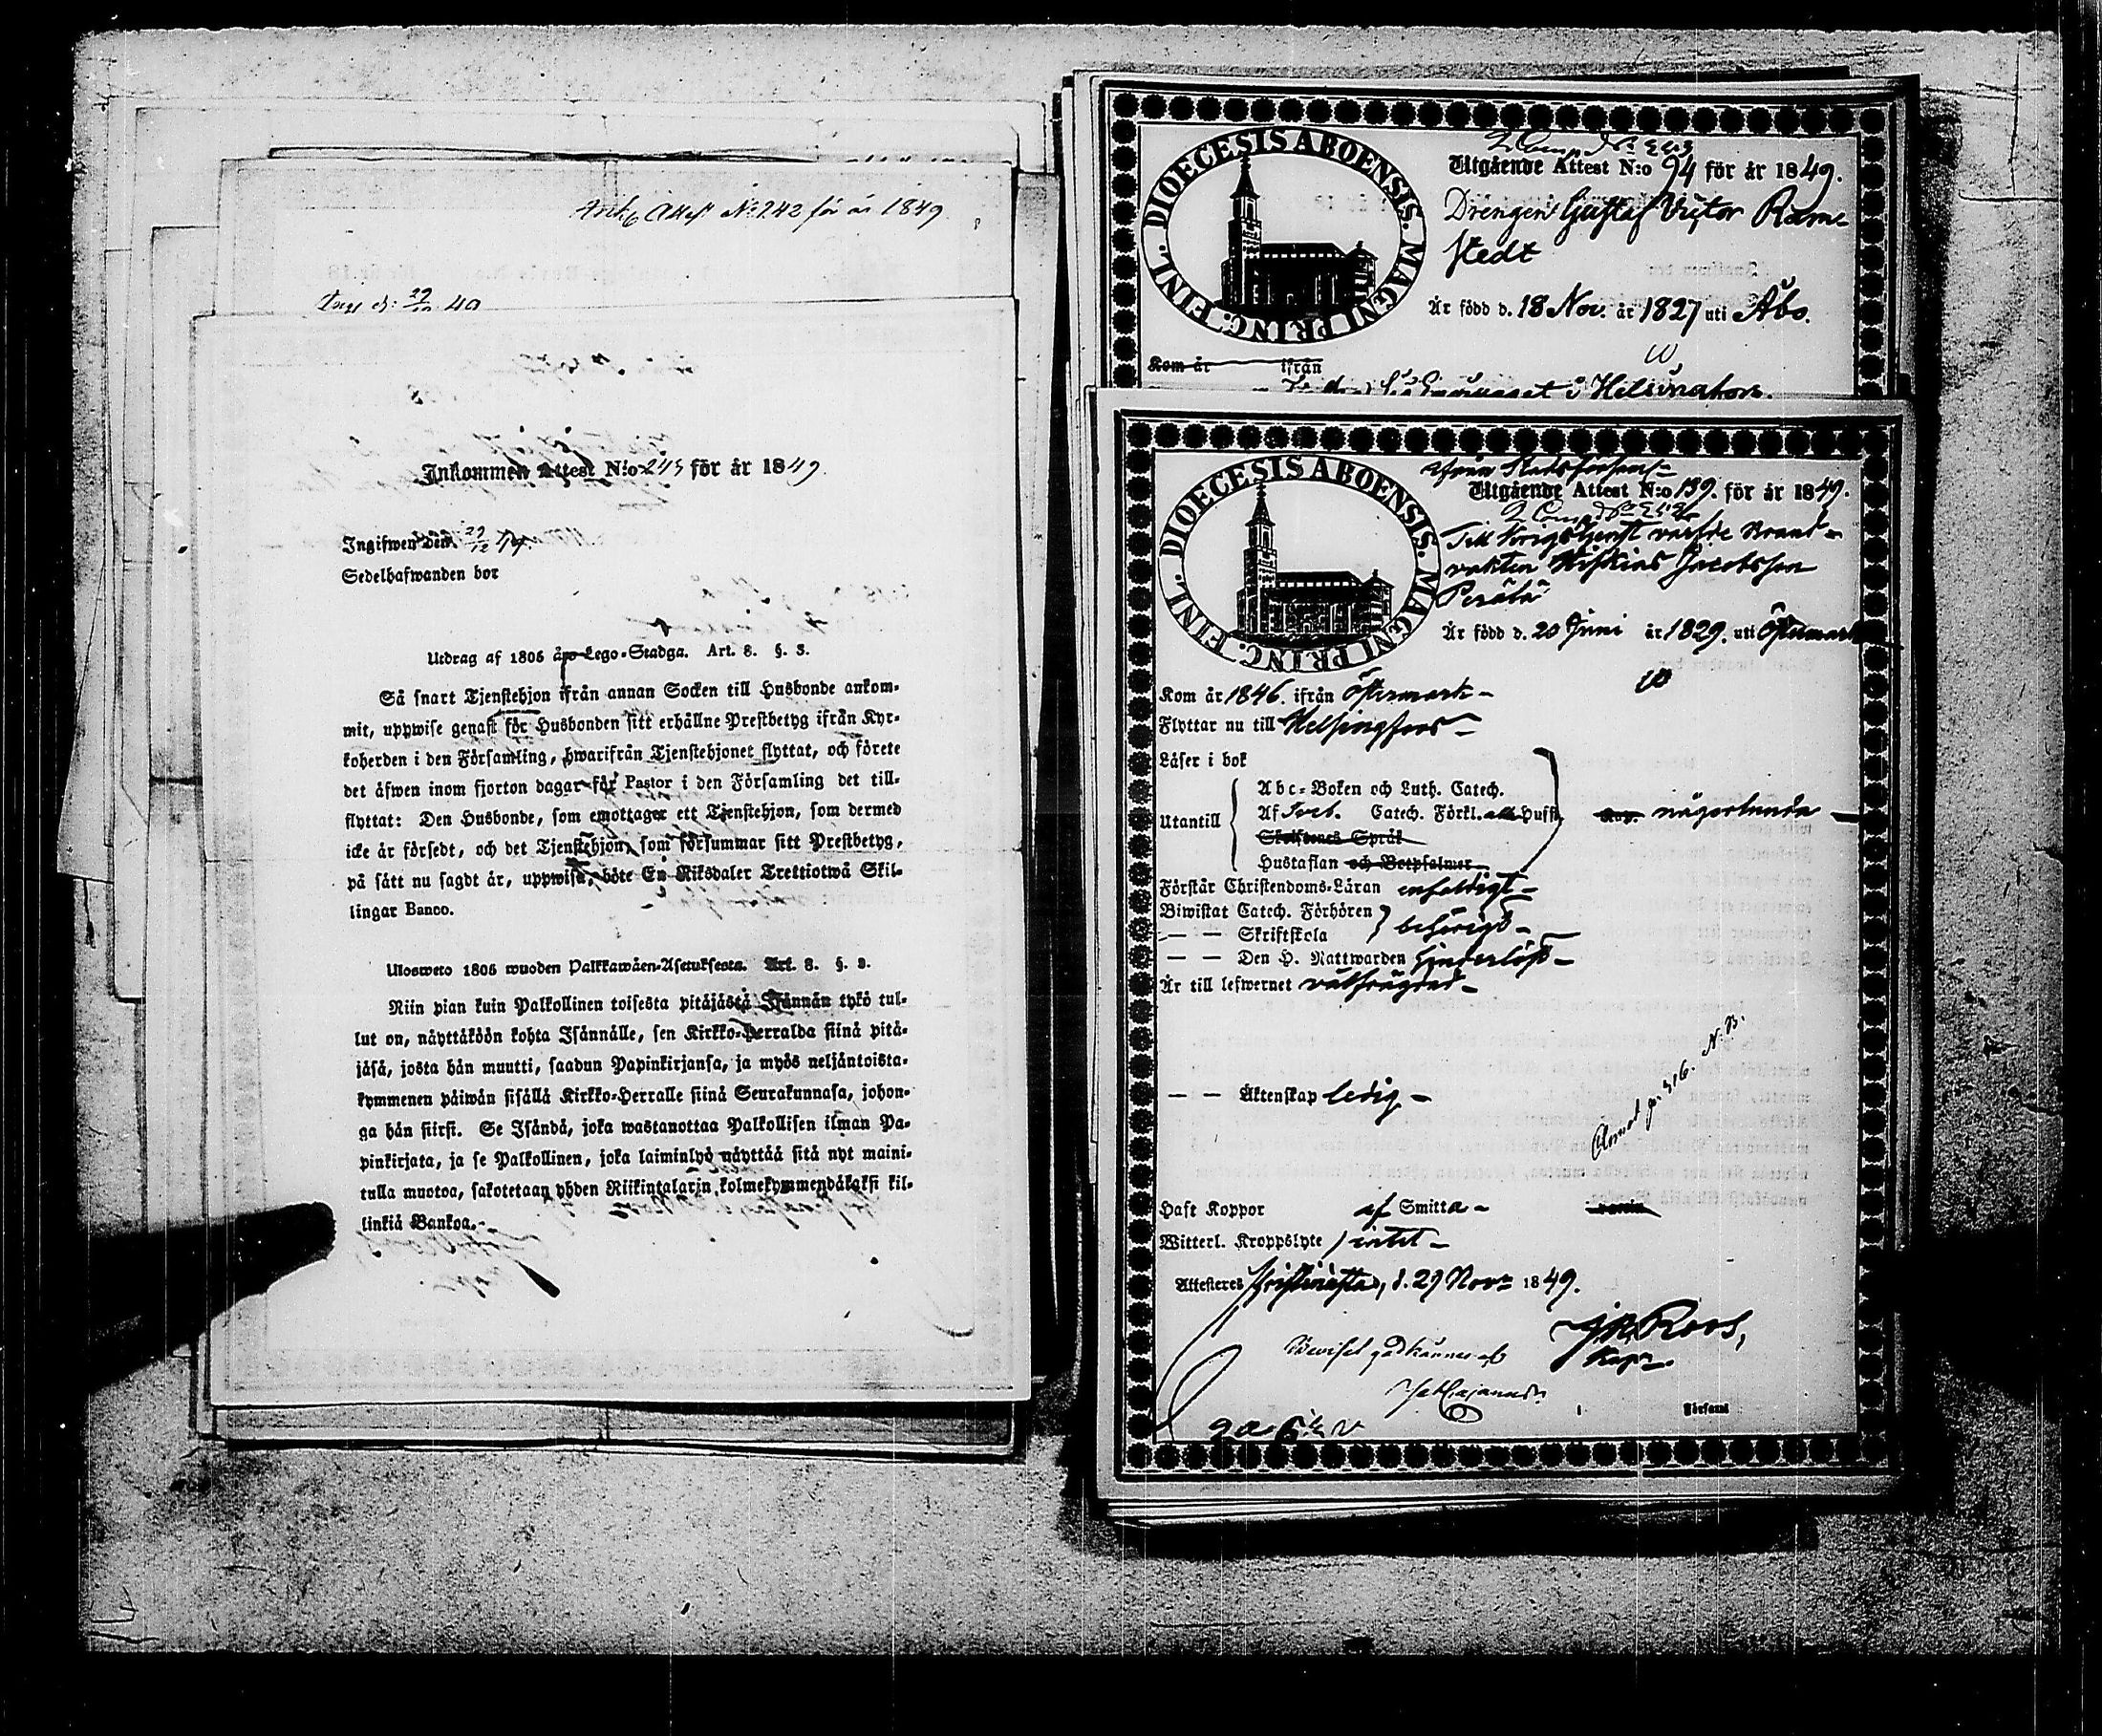 Attest No 242 för år 1849
Inkommen Attest N:o 243 för år 1849.
Ingifwen den 29/12 49.
Sedelhafwanden bor
Utdrag af 1805 års Lego-Stadga. Art. 8. §. 3.
Så snart Tjenstehjon ifrån annan Socken till Husbonde ankom-
mit, uppwise genast för Husbonden sitt erhållne Prestbetyg ifrån Kyr-
koherden i den Församling, hwarifrån Tjenstehjonet flyttat, och förete
det äfwen inom fjorton dagar för Pastor i den Församling det till-
flyttat: Den Husbonde, som emottager ett Tjenstehjon, som dermed
icke är försedt, och det Tjenstehjon, som försummar sitt Prestbetyg,
på sätt nu sagdt är, uppwisa, böte En Riksdaler Trettiotwå Skil-
lingar Banco.
Ulosweto 1805 wuoden Palkkawäen-Asetuksesta. Art. 8. §. 3.
Niin pian kuin Palkollinen toisesta pitäjästä Isännän tykö tul-
lut on, näyttäköön kohta Isännälle, sen Kirkko-Herralda siinä pitä-
jäsä, josta hän muutti, saadun Papinkirjansa, ja myös neljäntoista-
kymmenen päiwän sisällä Kirkko-Herralle siinä Seurakunnasa, johon-
ga hän siirsi. Se Isändä, joka wastanottaa Palkollisen ilman Pa-
pinkirjata, ja se Palkollinen, joka laiminlyö näyttää sitä nyt maini-
tulla muotoa, sakotetaan yhden Riikintalarin kolmekymmendäkaksi kil-
linkiä Bankoa.
DIOECESIS ABOENSIS. MAGNI PRINC. FINL.
Utgående Attest N:o 94 för år 1849.
Drengen Gustaf Victor Ram-
stedt
Är född d. 18 Nov. år 1827 uti Åbo.
Kom år ifrån
i Helsingfors.
DIOECESIS ABOENSIS. MAGNI PRINC. FINL.
Utgående Attest N:o 139. för år 1849.
Till Krigstjenst Brand-
vakten Jacobsson
Perälä
Är född d. 20 Juni år 1829. uti Östermark
Kom år 1846. ifrån Östermark
Flyttar nu till Helsingfors
Läser i bok
Utantill
Abc-Boken och Luth. Catech.
Af Sveb. Catech. Förkl. alla Hufst.
någorlunda
Skriftenes Språk
Hustaflan och Botpsalmer
Förstår Christendoms-Läran enfaldigt
Biwistat Catech. Förhören
— — Skriftskola
behörigt
— — Den H. Nattwarden
Är till lefwernet välfrägdad
— — Äktenskap ledig
Haft Koppor af Smitta
Witterl. Kroppslyte intet
Attesteras d. 29 Nov. 1849.
Roos,
Beviset godkännes af
Församl